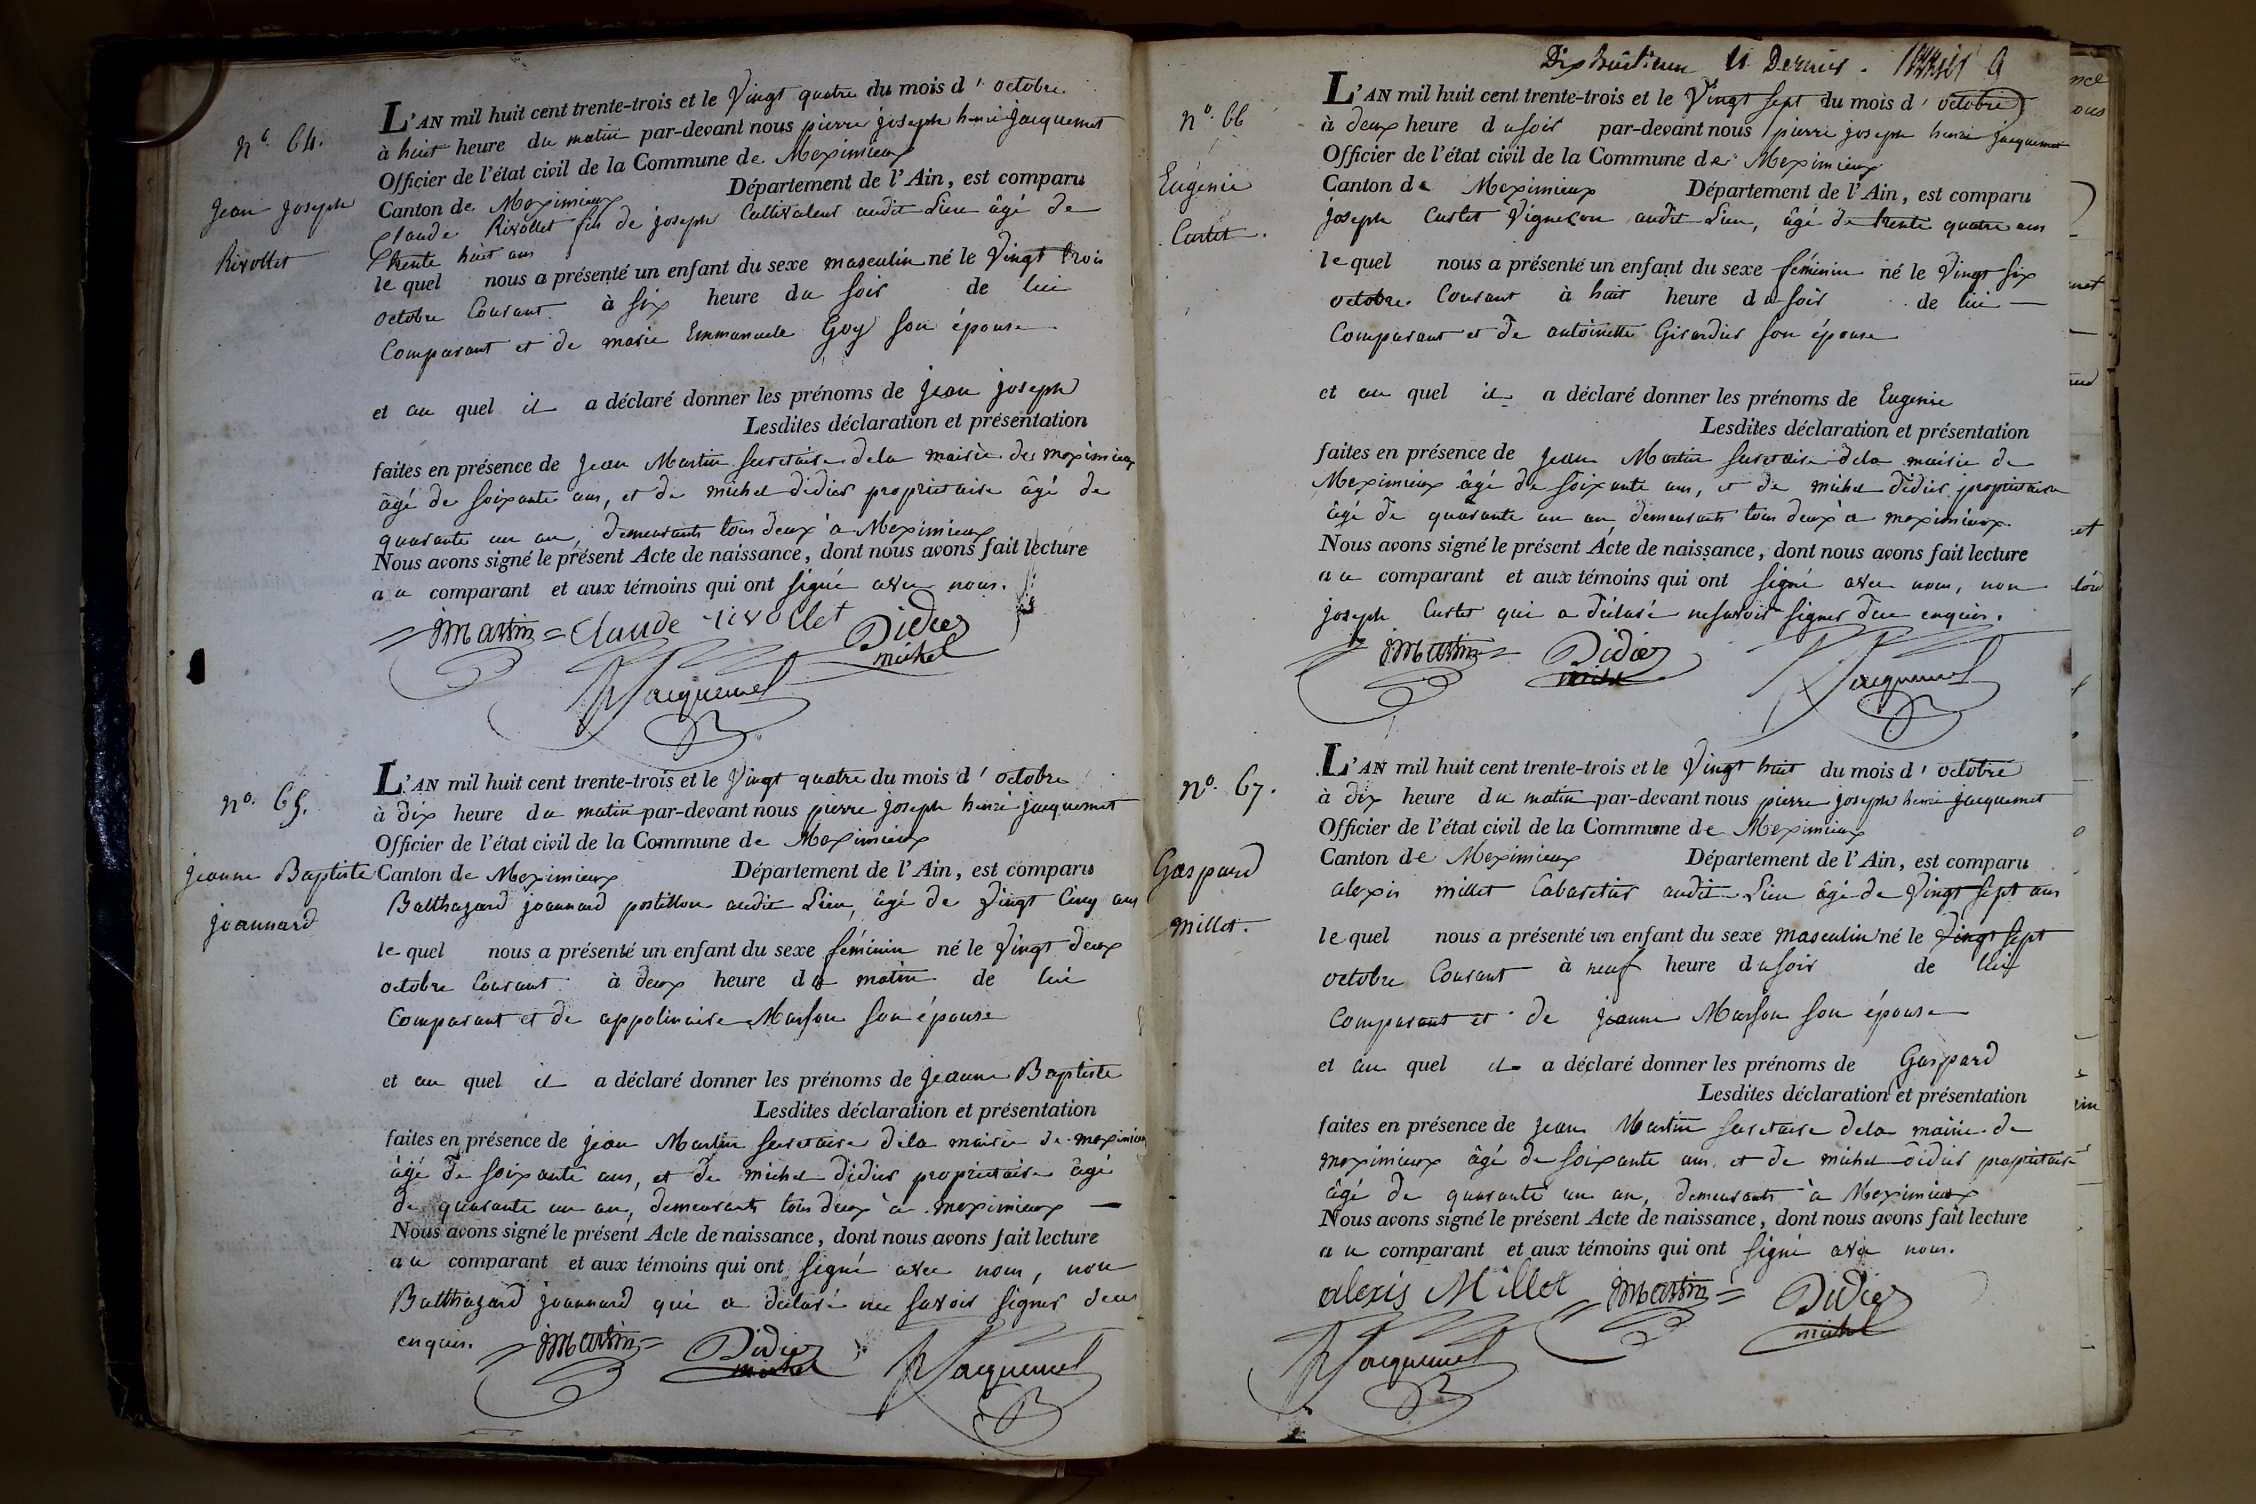 n.o 64.
Jean joseph
Rivollet
L'AN mil huit cent trente-trois et le Vingt quatre du mois d' octobre
à huit heure du matin par-devant nous pierre joseph henri jacquemet
Officier de l'état civil de la Commune de Meximieux
Canton de Meximieux Département de l'Ain, est comparu
Claude Rivollet fils de joseph Cultivateur audit Lieu âgé de
trente huit ans
le quel nous a présenté un enfant du sexe masculin né le Vingt trois
octobre Courant à six heure du soir de lui
Comparant et de marie Emmanuele Goy son épouse
et au quel il a déclaré donner les prénoms de jean joseph
Lesdites déclaration et présentation
faites en présence de jean Martin secretaire dela mairie de meximieux
âgé de soixante ans, et de michel didier proprietaire âgé de
quarante un an, demeurants tous deux à Meximieux
Nous avons signé le présent Acte de naissance, dont nous avons fait lecture
au comparant et aux témoins qui ont signé avec nous.
JMartin = Claude rivollet Didier
michel
Jacquemet
n.o 65.
jeanne Baptiste
joannard
L'AN mil huit cent trente-trois et le Vingt quatre du mois d' octobre
à dix heure du matin par-devant nous pierre joseph henri jacquemet
Officier de l'état civil de la Commune de Meximieux
Canton de Meximieux Département de l'Ain, est comparu
Balthazard joannard postillon audit Lieu, âgé de Vingt Cinq ans
le quel nous a présenté un enfant du sexe féminin né le Vingt deux
octobre Courant à deux heure du matin de lui
Comparant et de appolinaire Marson son épouse
et au quel il a déclaré donner les prénoms de jeanne Baptiste
Lesdites déclaration et présentation
faites en présence de jean Martin secretaire dela mairie de meximieux
âgé de soixante ans, et de michel didier proprietaire âgé
de quarante un an, demeurants tous deux à meximieux
Nous avons signé le présent Acte de naissance, dont nous avons fait lecture
au comparant et aux témoins qui ont signé avec nous, non
Balthazard joannard qui a déclaré ne savoir signer dece
enquis. JMartin = Didier Jacquemet
michel
Dix huitieme et Dernier
n.o 66
Eugénie
Curtet.
L'AN mil huit cent trente-trois et le Vingt sept du mois d' octobre
à deux heure du soir par-devant nous pierre joseph henri jacquemet
Officier de l'état civil de la Commune de Meximieux
Canton de Meximieux Département de l'Ain, est comparu
joseph Curtet Vigneron audit Lieu, âgé de trente quatre ans
le quel nous a présenté un enfant du sexe féminin né le Vingt six
octobre Courant à huit heure du soir de lui
Comparant et de antoinette Girardier son épouse
et au quel il a déclaré donner les prénoms de Eugenie
Lesdites déclaration et présentation
faites en présence de jean Martin secretaire dela mairie de
Meximieux âgé de soixante ans, et de michel didier proprietaire
âgé de quarante un an, demeurants tous deux à meximieux
Nous avons signé le présent Acte de naissance, dont nous avons fait lecture
au comparant et aux témoins qui ont signé avec nous, non
joseph Curtet qui a déclaré ne savoir signer dece enquis.
JMartin = Didier Jacquemet
michel
n.o 67.
Gaspard
millet.
L'AN mil huit cent trente-trois et le Vingt huit du mois d' octobre
à dix heure du matin par-devant nous pierre joseph henri jacquemet
Officier de l'état civil de la Commune de Meximieux
Canton de Meximieux Département de l'Ain, est comparu
alexis millet Cabaretier audit Lieu âgé de Vingt sept ans
le quel nous a présenté un enfant du sexe masculin né le Vingt sept
octobre Courant à neuf heure du soir de lui
Comparant et de jeanne Marson son épouse
et au quel il a déclaré donner les prénoms de Gaspard
Lesdites déclaration et présentation
faites en présence de jean Martin secretaire dela mairie de
meximieux âgé de soixante ans et de michel didier proprietaire
âgé de quarante un an, demeurants à Meximieux
Nous avons signé le présent Acte de naissance, dont nous avons fait lecture
au comparant et aux témoins qui ont signé avec nous.
alexis Millet JMartin = Didier
michel
Jacquemet